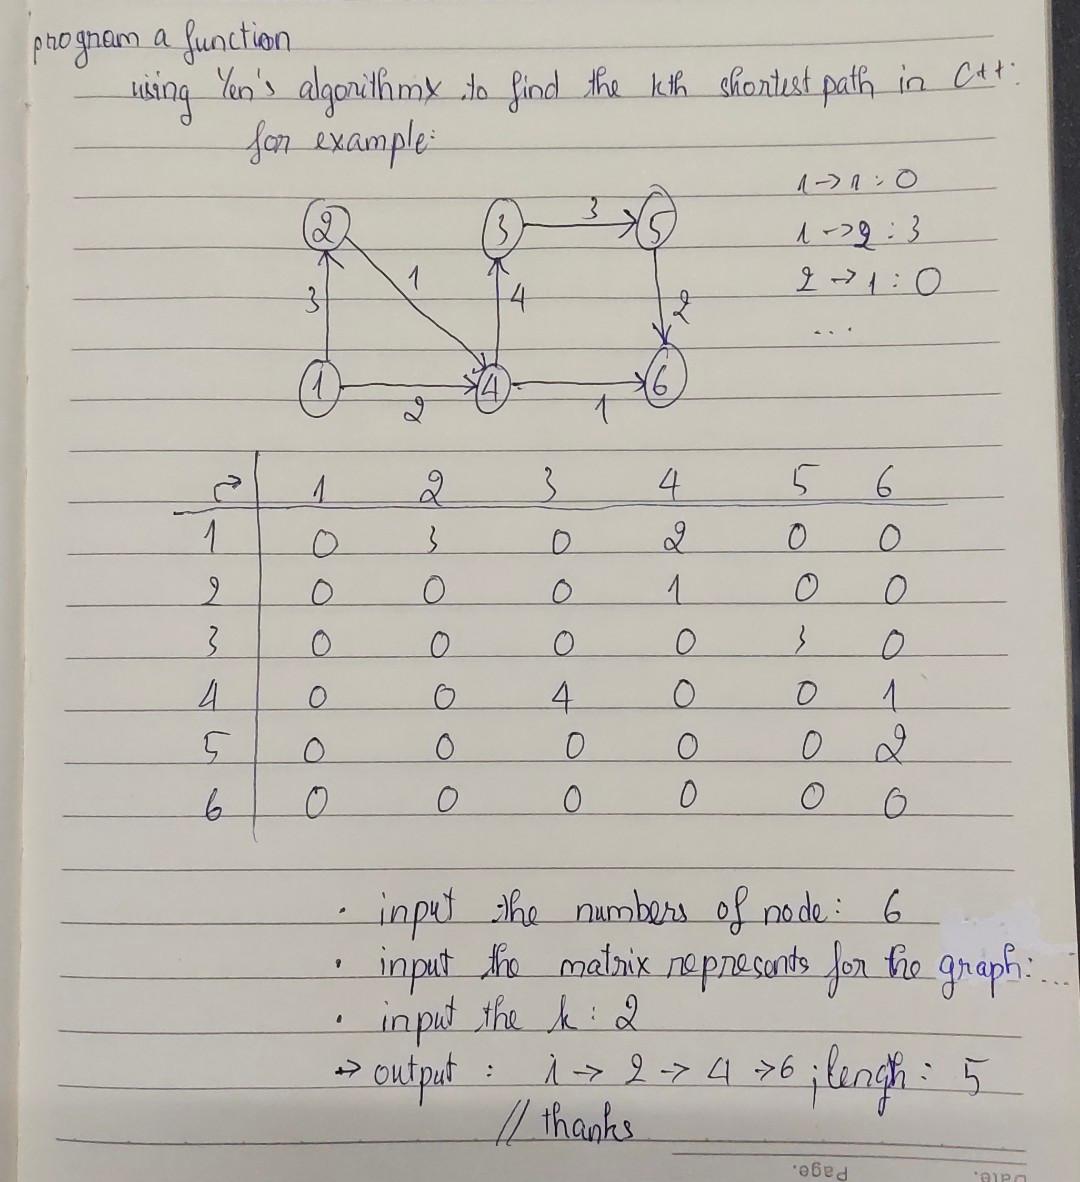 program a function
using Yen's algorithmx to find the kth shortest path in C++:
for example:
1 -> 1 : 0
1 -> 2 : 3
2 -> 1 : 0
...
2 3 3 5
1
3 4 2
1 2 4 1 6
1 2 3 4 5 6
1 0 3 0 2 0 0
2 0 0 0 1 0 0
3 0 0 0 0 3 0
4 0 0 4 0 0 1
5 0 0 0 0 0 2
6 0 0 0 0 0 0
· input the numbers of node: 6
· input the matrix represents for the graph:...
· input the k: 2
-> output : 1 -> 2 -> 4 -> 6 ; lengh: 5
// thanks
Page.
Date.